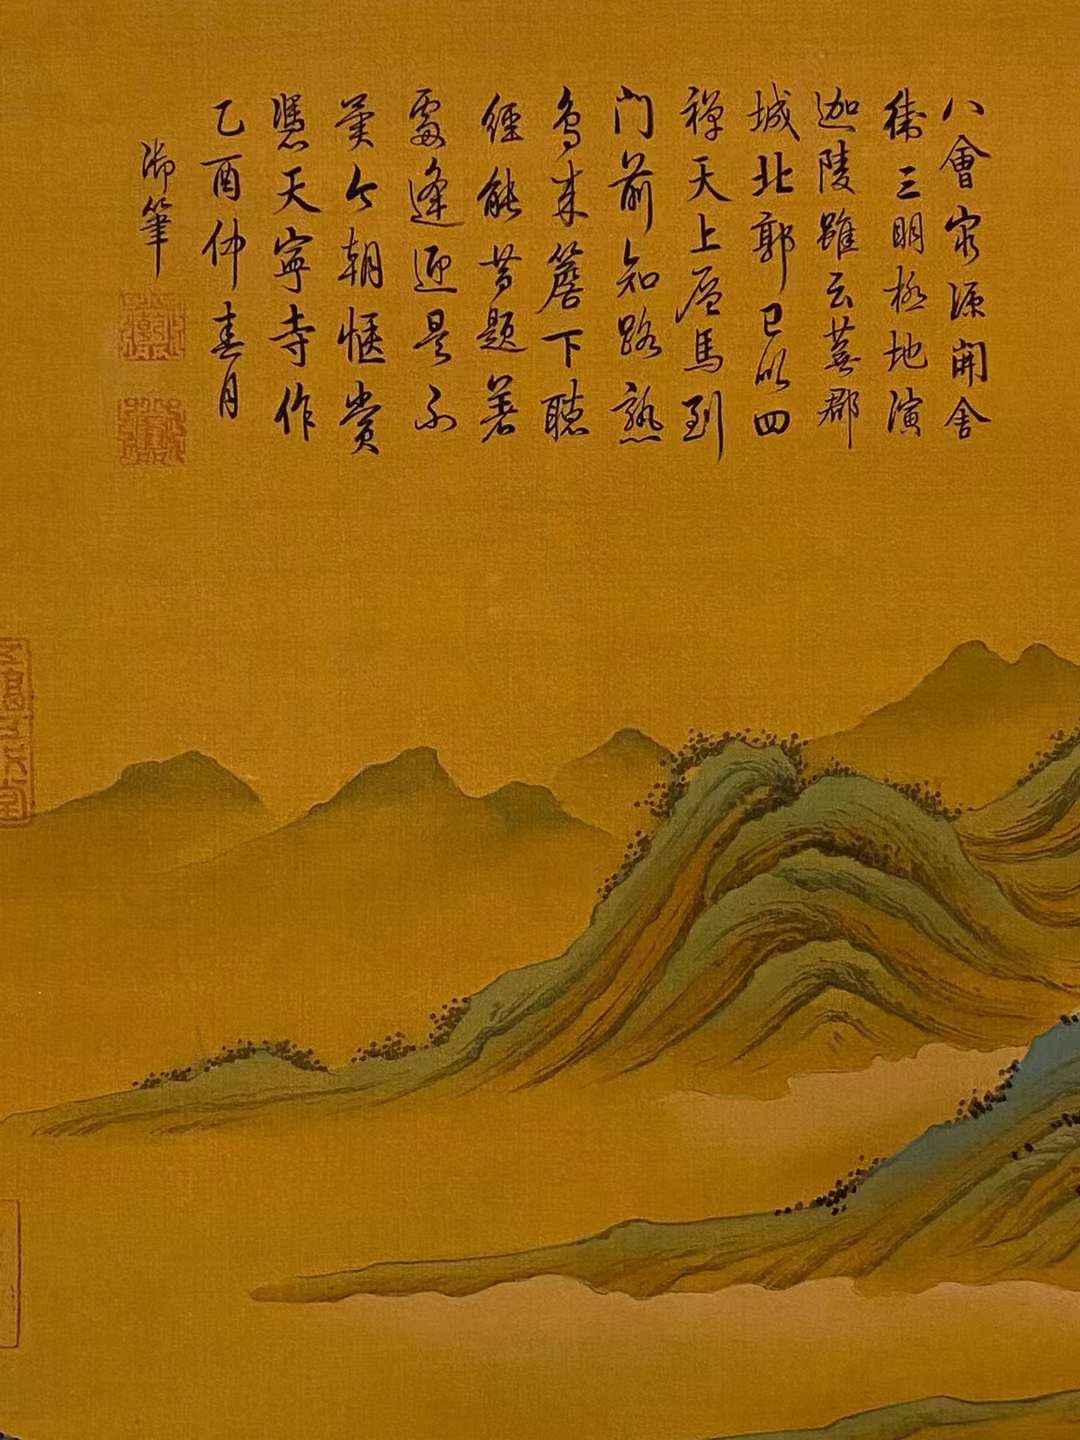 八會宗源開舍
衛三明極地演
迦陵雖云蕪郡
城北郭已似四
禪天上層馬到
門前知路熟
鳥來簷下聽
經能昔題著
處逢迎是不
異今朝愜賞
憑天寧寺作
乙酉仲春月
御筆